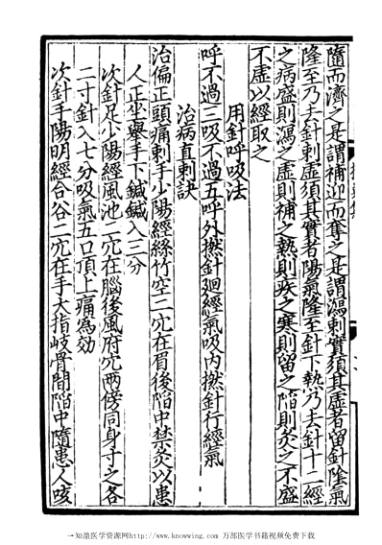 隨而濟之是謂補迎而奪之是謂瀉刺實須其虛者留針陰氣
隆至乃去針刺虛須其實者陽氣隆至針下熱乃去針十二經
之病盛則瀉之虛則補之熱則疾之寒則留之陷則灸之不盛
不虛以經取之
用針呼吸法
呼不過三吸不過五呼外撚針迴經氣吸內撚針行經氣
治病直刺訣
治偏正頭痛刺手少陽經絲竹空二穴在眉後陷中禁灸以患
人正坐舉手下鍼鍼入三分
次針足少陽經風池二穴在腦後風府穴兩傍同身寸之各
二寸針入七分吸氣五口頂上痛為効
次針手陽明經合谷二穴在手大指岐骨間陷中隨患人咳
→知澈医学资源网http://www.knowing.com 万部医学书籍视频免费下载